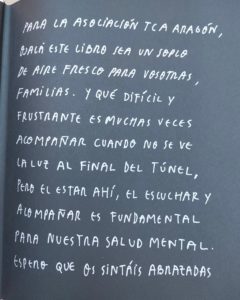 PARA LA ASOCIACIÓN TCA ARAGÓN,
OJALÁ ESTE LIBRO SEA UN SOPLO
DE AIRE FRESCO PARA VOSOTRAS,
FAMILIAS. Y QUÉ DIFÍCIL Y
FRUSTRANTE ES MUCHAS VECES
ACOMPAÑAR CUANDO NO SE VE
LA LUZ AL FINAL DEL TÚNEL,
PERO EL ESTAR AHÍ, EL ESCUCHAR Y
ACOMPAÑAR ES FUNDAMENTAL
PARA NUESTRA SALUD MENTAL.
ESPERO QUE OS SINTÁIS ABRAZADAS